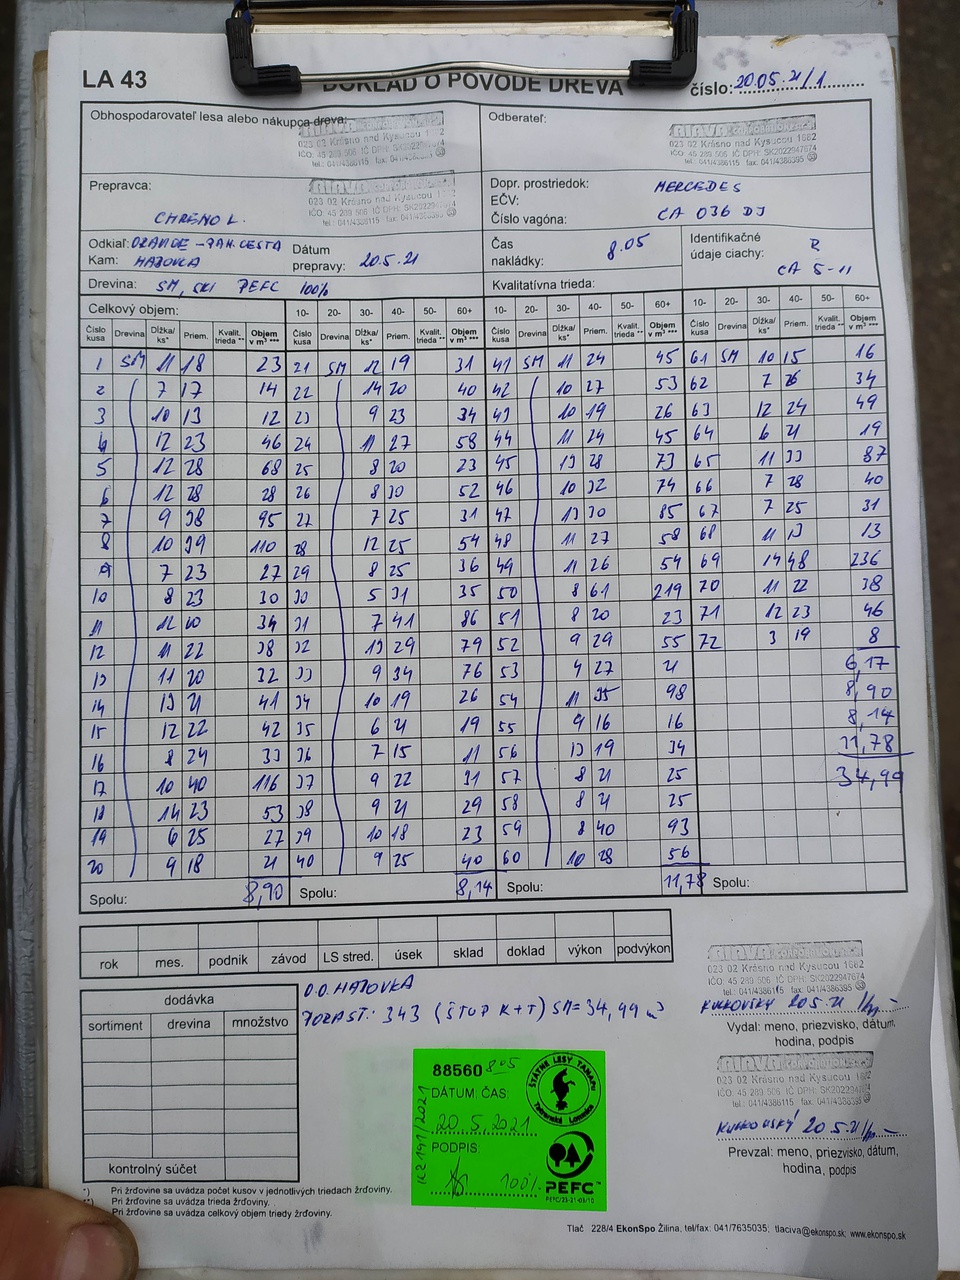 LA 43 DOKLAD O PÔVODE DREVA číslo: 20.05.21/1
Obhospodarovateľ lesa alebo nákupca dreva:
023 02 Krásno nad Kysucou 1682
IČO: 45 289 506 IČ DPH: SK2022947674
tel.: 041/4386115 fax: 041/4386395
Odberateľ:
023 02 Krásno nad Kysucou 1682
IČO: 45 289 506 IČ DPH: SK2022947674
tel.: 041/4386115 fax: 041/4386395
Prepravca:
023 02 Krásno nad Kysucou
IČO: 45 289 506 IČ DPH: SK2022947674
CHRENO L.
Dopr. prostriedok: MERCEDES
EČV:
Číslo vagóna: CA 036 DJ
Odkiaľ:
Kam: HAJOVKA
Dátum
prepravy: 20.5.21
Čas
nakládky: 8.05
Identifikačné
údaje ciachy:
CA 5-11
Drevina: SM, SKI PEFC 100%
Kvalitatívna trieda:
Celkový objem: 10- 20- 30- 40- 50- 60+ 10- 20- 30- 40- 50- 60+
Číslo kusa Drevina Dĺžka/ ks* Priem. Kvalit. trieda ** Objem v m³ *** Číslo kusa Drevina Dĺžka/ ks* Priem. Kvalit. trieda ** Objem v m³ *** Číslo kusa Drevina Dĺžka/ ks* Priem. Kvalit. trieda ** Objem v m³ *** Číslo kusa Drevina Dĺžka/ ks* Priem. Kvalit. trieda ** Objem v m³ ***
1 SM 11 18 23 21 SM 12 19 31 41 SM 11 24 45 61 SM 10 15 16
2 7 17 14 22 14 20 40 42 10 27 53 62 7 26 34
3 10 13 12 23 9 23 34 43 10 19 26 63 12 24 49
4 12 23 46 24 11 27 58 44 11 24 45 64 6 21 19
5 12 28 68 25 8 20 23 45 13 28 73 65 11 33 87
6 12 28 28 26 8 30 52 46 10 32 74 66 7 28 40
7 9 38 95 27 7 25 31 47 13 30 85 67 7 25 31
8 10 39 110 28 12 25 54 48 11 27 58 68 11 13 13
9 7 23 27 29 8 25 36 49 11 26 54 69 14 48 236
10 8 23 30 30 5 31 35 50 8 61 219 70 11 22 38
11 12 20 34 31 7 41 86 51 8 20 23 71 12 23 46
12 11 22 38 32 13 29 79 52 9 29 55 72 3 19 8
13 11 20 32 33 9 34 76 53 4 27 21 6,17
14 13 21 41 34 10 19 26 54 11 35 98 8,90
15 12 22 42 35 6 21 19 55 9 16 16 8,14
16 8 24 33 36 7 15 11 56 13 19 34 11,78
17 10 40 116 37 9 22 31 57 8 21 25 34,99
18 14 23 53 38 9 21 29 58 8 21 25
19 6 25 27 39 10 18 23 59 8 40 93
20 9 18 21 40 9 25 40 60 10 28 56
Spolu: 8,90 Spolu: 8,14 Spolu: 11,78 Spolu:
rok mes. podnik závod LS stred. úsek sklad doklad výkon podvýkon
O.O. HAJOVKA
PORAST: 343 (ŠTÓP K+T) SM=34,99 m³
dodávka
sortiment drevina množstvo
kontrolný súčet
023 02 Krásno nad Kysucou 1682
IČO: 45 289 506 IČ DPH: SK2022947674
tel.: 041/4386115 fax: 041/4386395
20.5.21
Vydal: meno, priezvisko, dátum,
hodina, podpis
023 02 Krásno nad Kysucou 1682
IČO: 45 289 506 IČ DPH: SK2022947674
tel.: 041/4386115 fax: 041/4386395
20.5.21
Prevzal: meno, priezvisko, dátum,
hodina, podpis
88560 8:05
DÁTUM, ČAS:
20.5.2021
PODPIS:
100%
ŠTÁTNE LESY TANAPu
Tatranská Lomnica
PEFC
PEFC/23-21-03/10
*) Pri žrďovine sa uvádza počet kusov v jednotlivých triedach žrďoviny.
**) Pri žrďovine sa uvádza trieda žrďoviny.
***) Pri žrďovine sa uvádza celkový objem triedy žrďoviny.
Tlač 228/4 EkonSpo Žilina, tel/fax: 041/7635035; tlaciva@ekonspo.sk; www.ekonspo.sk